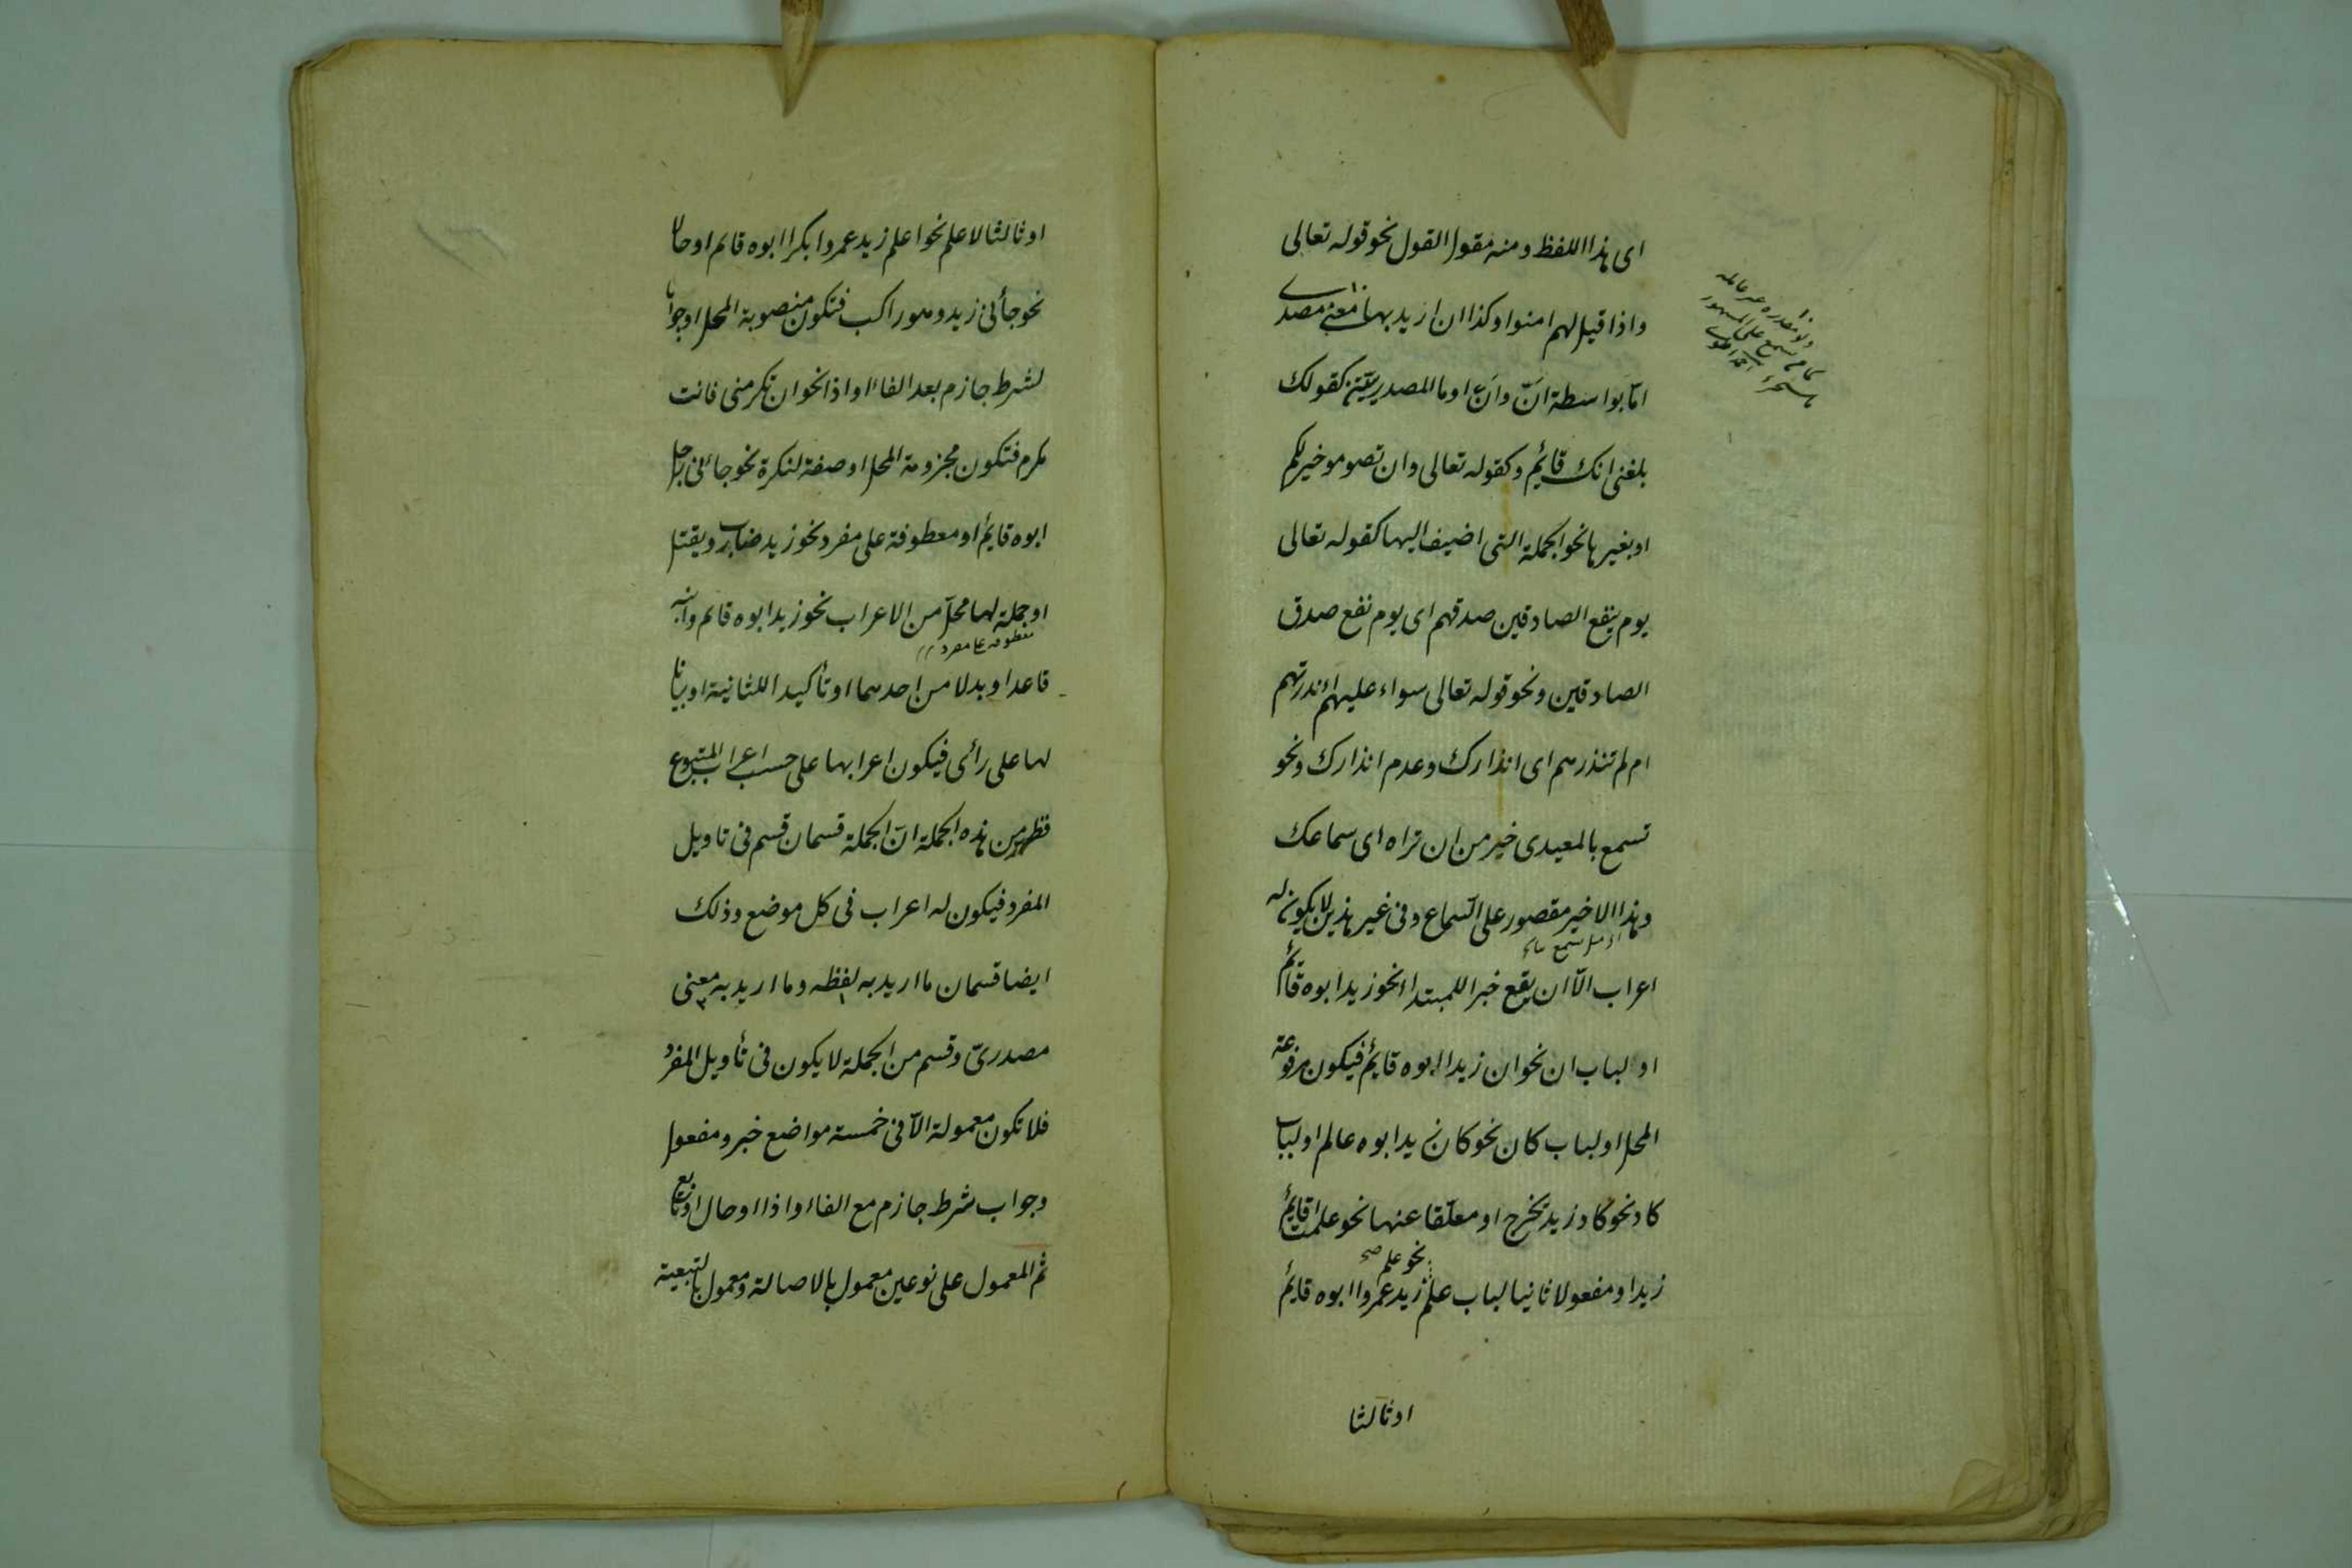 اى هذا اللفظ ومنه مقول القول نحو قوله تعالى
واذا قيل لهم امنوا وكذا ان اريد بها معنى مصدرى
امّا بواسطة انّ وان او ما المصدريتين كقولك
بلغنى انك قائم وكقوله تعالى وان تصوموا خير لكم
او بغيرها نحو الجملة التى اضيف اليها كقوله تعالى
يوم ينفع الصادقين صدقهم اى يوم نفع صدق
الصادقين ونحو قوله تعالى سواء عليهم ءانذرتهم
ام لم تنذرهم اى انذارك وعدم انذارك ونحو
تسمع بالمعيدى خير من ان تراه اى سماعك
وهذا الاخير مقصور على السّماع وفى غير هذين لا يكون له
اعراب الّا ان يقع خبرا للمبتدا نحو زيد ابوه قائم
او لباب ان نحو ان زيدا ابوه قايم فيكون مرفوعة
المحل او لباب كان نحو كان زيد ابوه عالم او لباب
كاد نحو كاد زيد يخرج او معلّقا عنها نحو علمت اقايم
نحو علم صح
زيد او مفعولا ثانيا لباب علم زيد عمروا ابوه قايم
او ثالثا
او ثالثا لاعلم نحو اعلم زيد عمروا بكرا ابوه قائم او حالا
نحو جاءنى زيد وهو راكب فتكون منصوبة المحل او جوابا
لشرط جازم بعد الفاء او اذا نحو ان تكرمنى فانت
مكرم فتكون مجزومة المحل او صفة لنكرة نحو جاءنى رجل
ابوه قايم او معطوفة على مفرد نحو زيد ضارب ويقتل
او جملة لها محل من الاعراب نحو زيد ابوه قائم وابنه
معطوفه على مفرد
قاعد او بدلا من احدهما او تأكيدا للثانية او بيانا
لها على رأى فيكون اعرابها على حسب اعراب المتبوع
فظهر من هذه الجملة انّ الجملة قسمان قسم فى تاويل
المفرد فيكون له اعراب فى كل موضع وذلك
ايضا قسمان ما اريد به لفظه وما اريد به معنى
مصدرىّ وقسم من الجملة لا يكون فى تأويل المفرد
فلا تكون معمولة الّا فى خمسة مواضع خبر ومفعول
وجواب شرط جازم مع الفاء او اذا او حال او تابع
ثم المعمول على نوعين معمول بالاصالة ومعمول بالتبعية